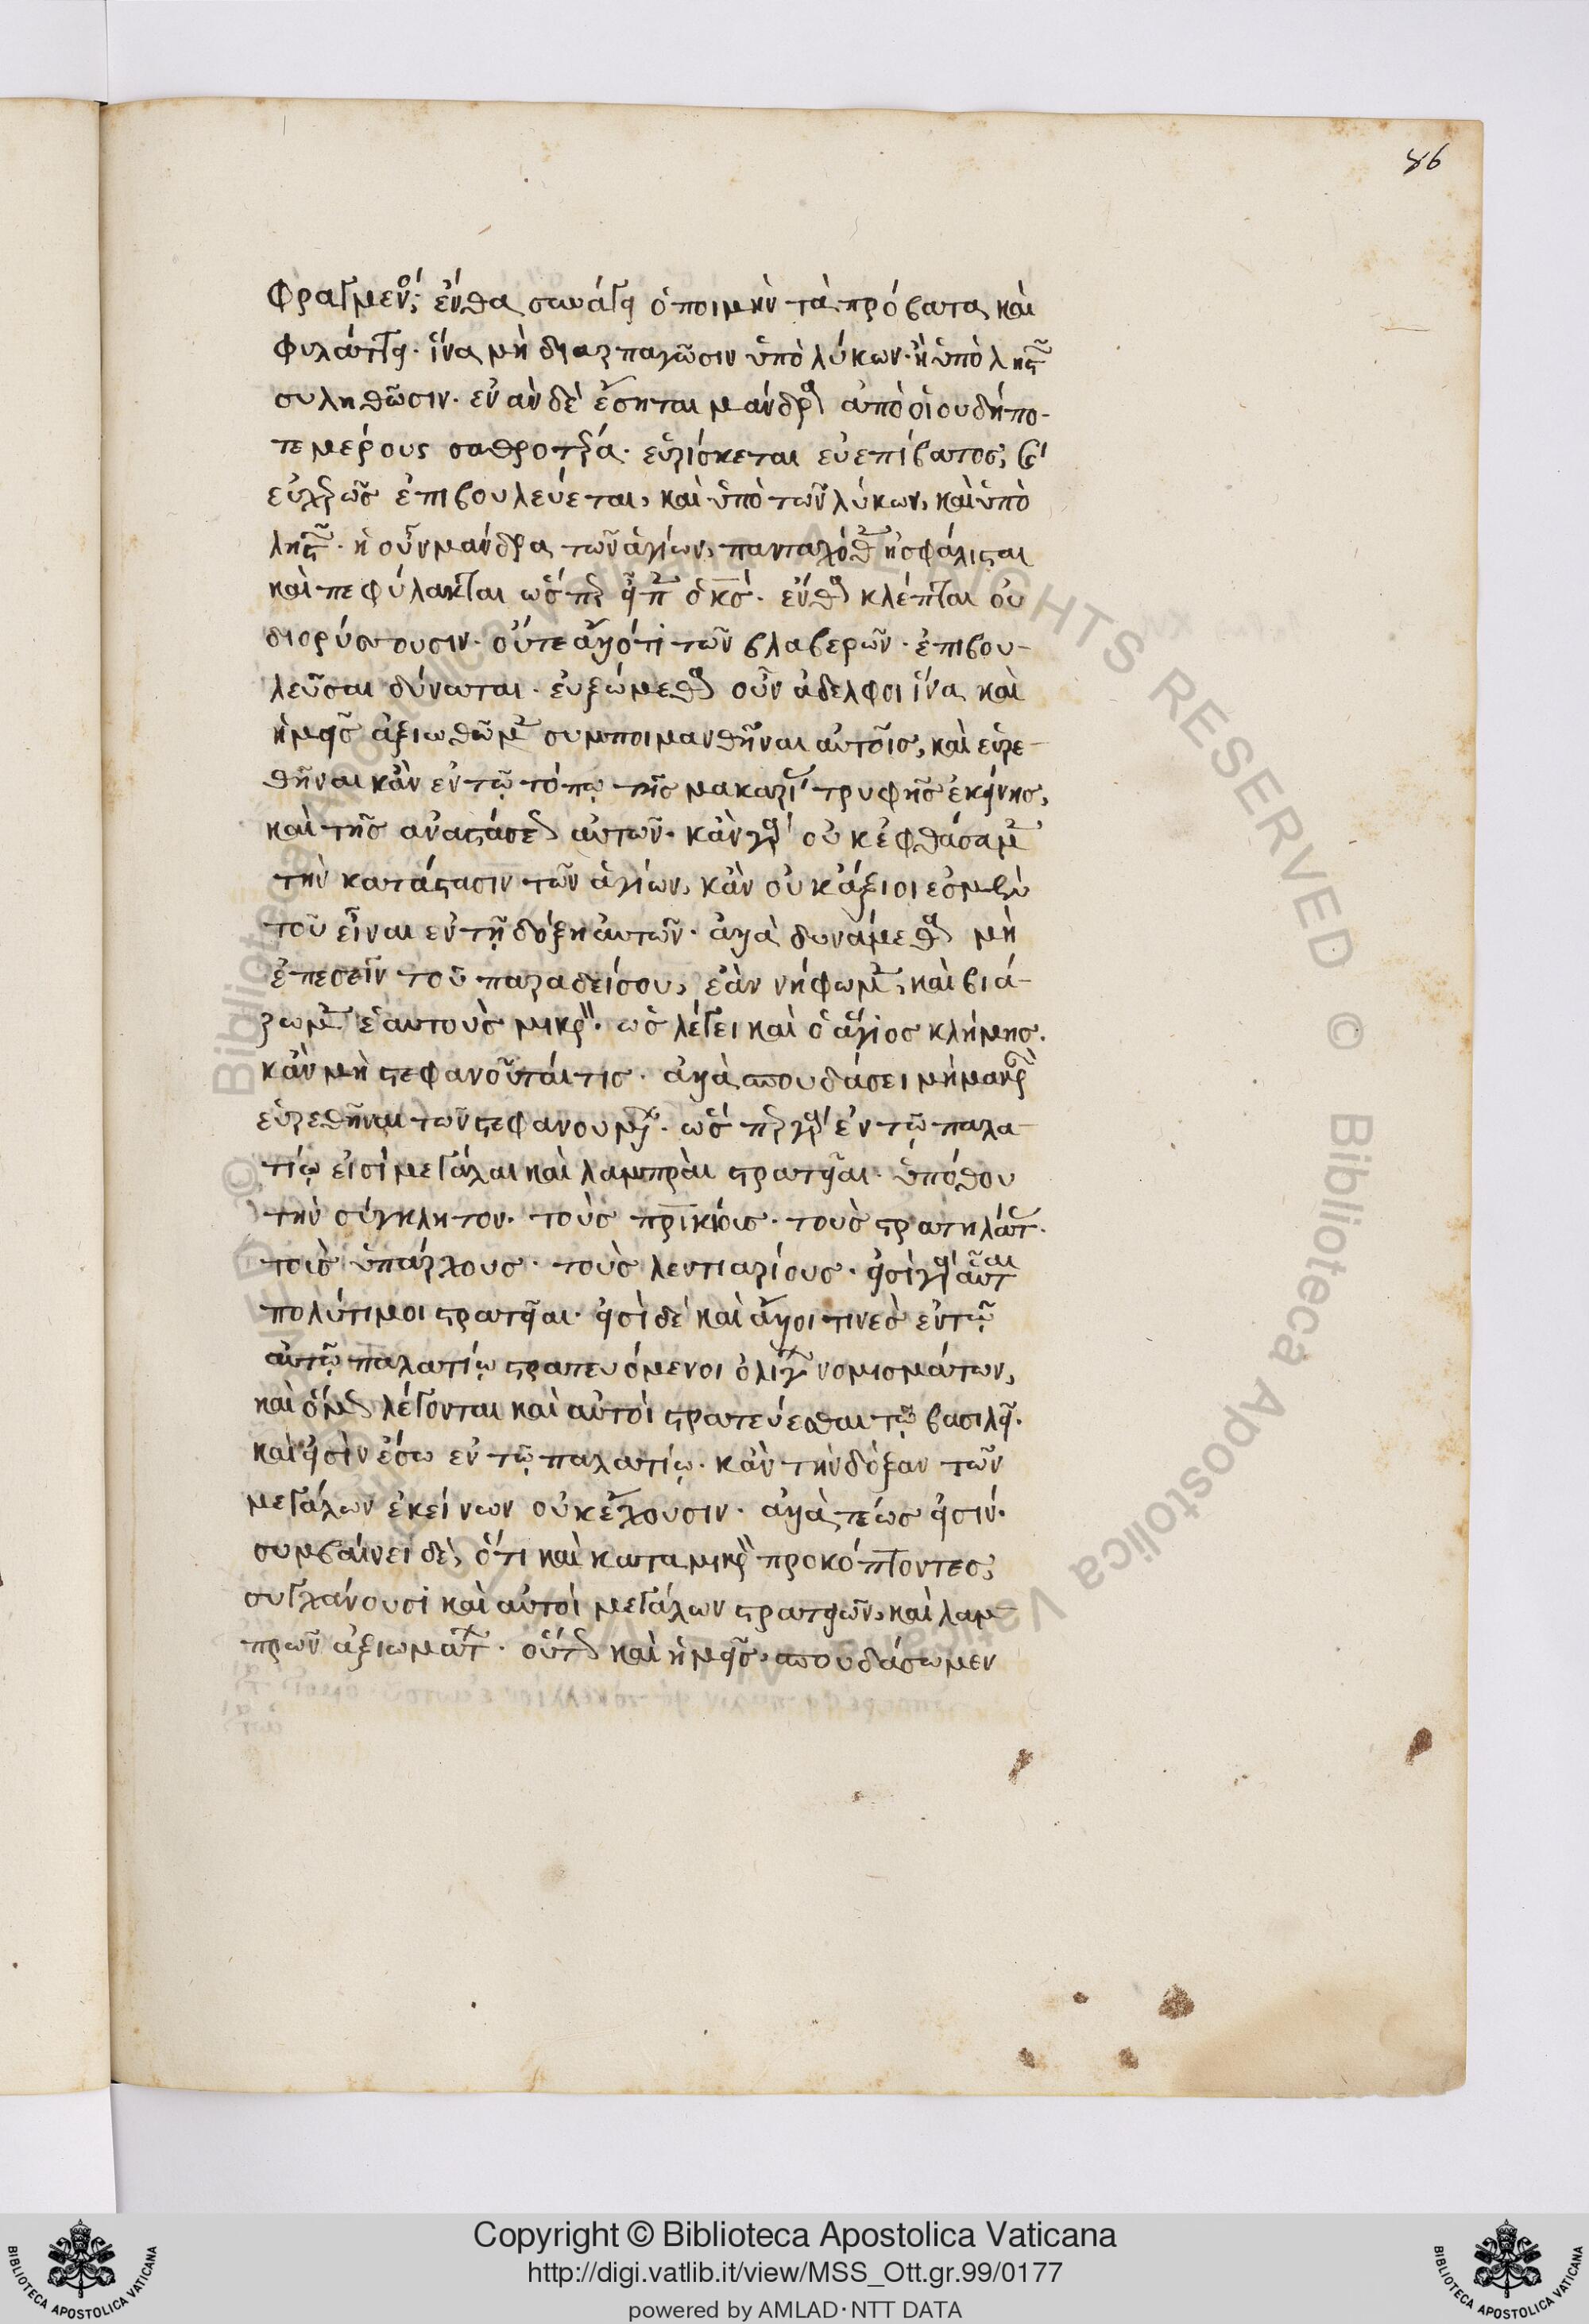 86
φραγμενο´, ἔνθα συνάγει ὁ ποιμὴν τὰ πρόβατα καὶ
φυλάττει· ἵνα μὴ διασπαγῶσιν ὑπὸ λύκων· ἢ ὑπὸ ληστ῀
συληθῶσιν· ἐν ἂν δὲ ἔσηται μάνδρα ἀπὸ οἱουδήπο-
τε μέρους σαθροτέρα· εὑρίσκεται εὐεπίβατος, καὶ
εὐχερῶς ἐπιβουλεύεται, καὶ ὑπὸ τῶν λύκων, καὶ ὑπὸ
ληστ῀· ἡ οὖν μάνδρα τῶν ἁγίων, πανταχόθεν ἠσφάλισται
καὶ πεφύλακται ὥσπερ εἶπεν ὁ κσ´· ἔνθα κλέπται οὐ
διορύσσουσιν· οὔτε ἄλλό τι τῶν βλαβερῶν· ἐπιβου-
λεῦσαι δύναται· εὐξώμεθα οὖν ἀδελφοὶ ἵνα καὶ
ἡμεῖς ἀξιωθῶμεν συμποιμανθῆναι αὐτοῖς, καὶ εὑρε-
θῆναι κἂν ἐν τῷ τόπῳ τῆς μακαρί´ τρυφῆς ἐκείνης,
καὶ τῆς ἀναστάσεως αὐτῶν· κἂν γὰρ οὐκ ἐφθάσαμεν
τὴν κατάστασιν τῶν ἁγίων, κἂν οὐκ ἄξιοι ἐσμὲν
τοῦ εἶναι ἐν τῇ δόξῃ αὐτῶν· ἀλλὰ δυνάμεθα μὴ
ἐπεσεῖν τοῦ παραδείσου, ἐὰν νήφωμεν, καὶ βιά-
ζωμεν ἑαυτοὺς μικρὸν· ὡς λέγει καὶ ὁ ἅγιος κλήμης·
κἂν μὴ στεφανοῦταί τις· ἀλλὰ σπουδάσει μὴ μακρὰν
εὑρεθῆναι τῶν στεφανουμένων· ὥσπερ γὰρ ἐν τῷ παλα-
τίῳ εἰσὶ μεγάλαι καὶ λαμπραὶ στρατεῖαι· ὑπόθου
τὴν σύγκλητον· τοὺς πρικίους· τοὺς στρατηλάτ·
τοὺς ὑπάρχους· τοὺς λεντιαρίους· εἰσὶ γὰρ αὗται
πολύτιμοι στρατεῖαι· εἰσὶ δὲ καὶ ἄλλοι τινὲς ἐν τῷ
αὐτῷ παλατίῳ στρατευόμενοι ὀλίγων νομισμάτων,
καὶ ὅμως λέγονται καὶ αὐτοὶ στρατεύεσθαι τῷ βασιλεῖ·
καὶ εἰσὶν ἔσω ἐν τῷ παλατίῳ· κἂν τὴν δόξαν τῶν
μεγάλων ἐκείνων οὐκ ἔχουσιν· ἀλλὰ τέως εἰσίν·
συμβαίνει δὲ, ὅτι καὶ κατὰ μικρὸν προκόπτοντες,
τυγχάνουσι καὶ αὐτοὶ μεγάλων στρατειῶν, καὶ λαμ-
πρῶν ἀξιωμάτων· οὕτως καὶ ἡμεῖς, σπουδάσωμεν
Copyright © Biblioteca Apostolica Vaticana
http://digi.vatlib.it/view/MSS_Ott.gr.99/0177
powered by AMLAD·NTT DATA